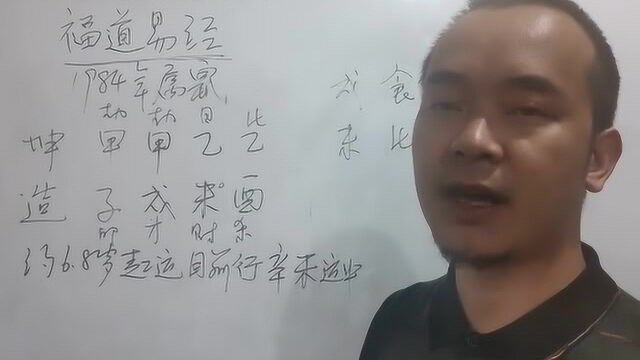 福道易经
1984年属鼠
劫 劫 日 比
坤 甲 甲 乙 乙
食
造 子 戌 未 酉
未 比
才 财 杀
约6.8岁起运目前行辛未运中